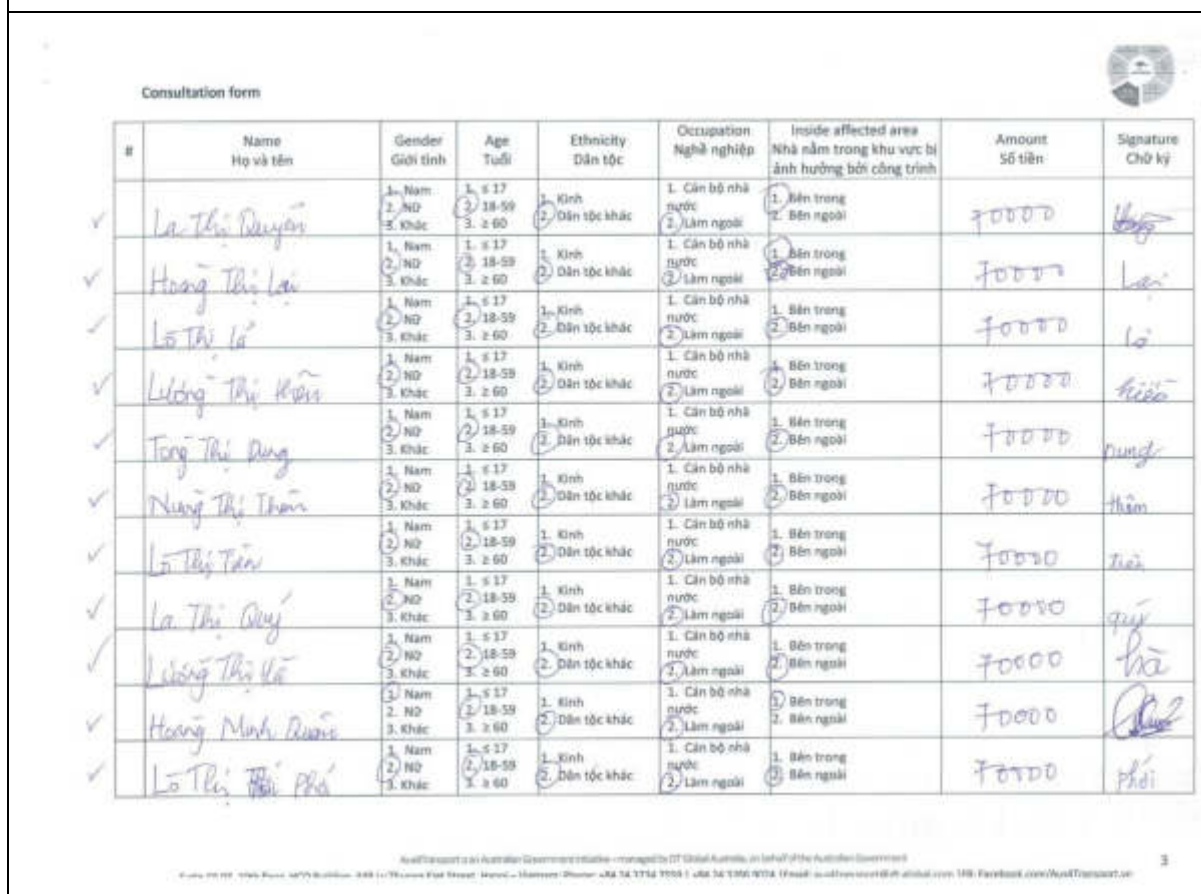 Consultation form
#
Name
Họ và tên
Gender
Giới tính
Age
Tuổi
Ethnicity
Dân tộc
Occupation
Nghề nghiệp
Inside affected area
Nhà nằm trong khu vực bị
ảnh hưởng bởi công trình
Amount
Số tiền
Signature
Chữ ký
La Thị Quyên
1. Nam
2. Nữ
3. Khác
1. ≤ 17
2. 18-59
3. ≥ 60
1. Kinh
2. Dân tộc khác
1. Cán bộ nhà
nước
2. Làm ngoài
1. Bên trong
2. Bên ngoài
70000
Hoàng Thị Lại
1. Nam
2. Nữ
3. Khác
1. ≤ 17
2. 18-59
3. ≥ 60
1. Kinh
2. Dân tộc khác
1. Cán bộ nhà
nước
2. Làm ngoài
1. Bên trong
2. Bên ngoài
70000
Lại
Lò Thị
1. Nam
2. Nữ
3. Khác
1. ≤ 17
2. 18-59
3. ≥ 60
1. Kinh
2. Dân tộc khác
1. Cán bộ nhà
nước
2. Làm ngoài
1. Bên trong
2. Bên ngoài
70000
Lường Thị
1. Nam
2. Nữ
3. Khác
1. ≤ 17
2. 18-59
3. ≥ 60
1. Kinh
2. Dân tộc khác
1. Cán bộ nhà
nước
2. Làm ngoài
1. Bên trong
2. Bên ngoài
70000
Tòng Thị Dung
1. Nam
2. Nữ
3. Khác
1. ≤ 17
2. 18-59
3. ≥ 60
1. Kinh
2. Dân tộc khác
1. Cán bộ nhà
nước
2. Làm ngoài
1. Bên trong
2. Bên ngoài
70000
Dung
Thị
1. Nam
2. Nữ
3. Khác
1. ≤ 17
2. 18-59
3. ≥ 60
1. Kinh
2. Dân tộc khác
1. Cán bộ nhà
nước
2. Làm ngoài
1. Bên trong
2. Bên ngoài
70000
Lò Thị
1. Nam
2. Nữ
3. Khác
1. ≤ 17
2. 18-59
3. ≥ 60
1. Kinh
2. Dân tộc khác
1. Cán bộ nhà
nước
2. Làm ngoài
1. Bên trong
2. Bên ngoài
70000
La Thị Quý
1. Nam
2. Nữ
3. Khác
1. ≤ 17
2. 18-59
3. ≥ 60
1. Kinh
2. Dân tộc khác
1. Cán bộ nhà
nước
2. Làm ngoài
1. Bên trong
2. Bên ngoài
70000
quý
Lường Thị Hà
1. Nam
2. Nữ
3. Khác
1. ≤ 17
2. 18-59
3. ≥ 60
1. Kinh
2. Dân tộc khác
1. Cán bộ nhà
nước
2. Làm ngoài
1. Bên trong
2. Bên ngoài
70000
hà
Hoàng Minh
1. Nam
2. Nữ
3. Khác
1. ≤ 17
2. 18-59
3. ≥ 60
1. Kinh
2. Dân tộc khác
1. Cán bộ nhà
nước
2. Làm ngoài
1. Bên trong
2. Bên ngoài
70000
Lò Thị
1. Nam
2. Nữ
3. Khác
1. ≤ 17
2. 18-59
3. ≥ 60
1. Kinh
2. Dân tộc khác
1. Cán bộ nhà
nước
2. Làm ngoài
1. Bên trong
2. Bên ngoài
70000
Aus4Transport is an Australian Government initiative – managed by DT Global Australia, on behalf of the Australian Government
3